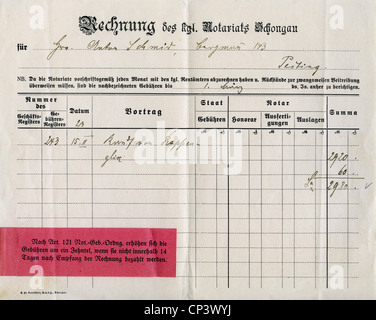 Rechnung des kgl. Notariats Schongau
für Hrn. Anton Schmid, Bergmann 113
Peiting.
NB. Da die Notariate vorschriftsgemäß jeden Monat mit den kgl. Rentämtern abzurechnen haben u. Rückstände zur zwangsweisen Beitreibung
überweisen müssen, sind die nachbezeichneten Gebühren bis 1. März ds. Js. anher zu berichtigen.
Nummer des
Geschäfts-Registers
Gebühren-Registers
Datum
Vortrag
Staat
Gebühren
Notar
Honorar
Ausfertigungen
Auslagen
Summa
243 15.II
2920
60
Sa 2980
Nach Art. 121 Not.-Geb.-Ordng. erhöhen sich die
Gebühren um ein Zehntel, wenn sie nicht innerhalb 14
Tagen nach Empfang der Rechnung bezahlt werden.
alamy
alamy
a
www.alamy.com - CP3WYJ